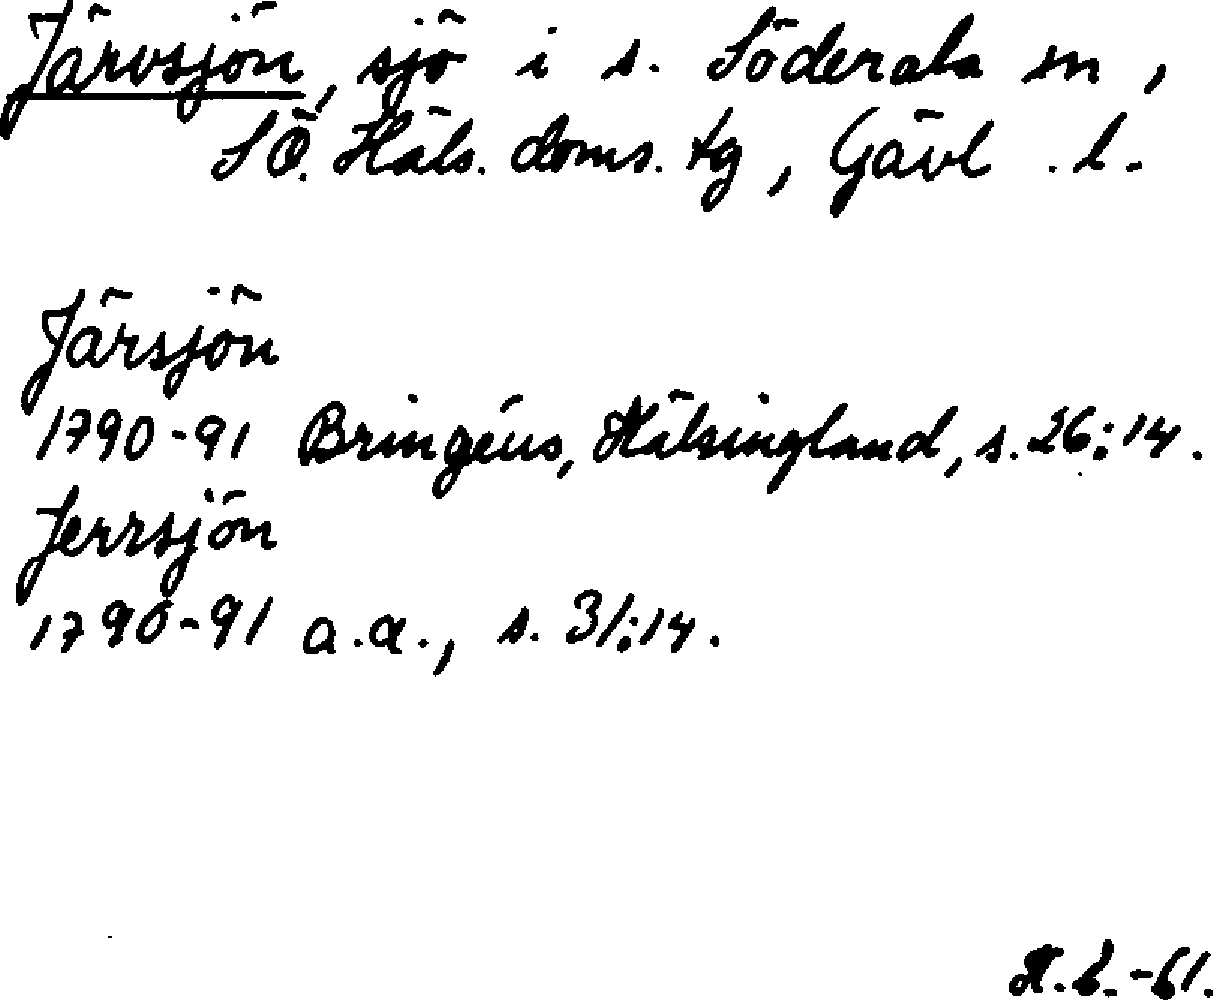 Järvsjön, sjö i s. Söderala sn,
SÖ. Häls. doms. tg, Gävl. l.
Järsjön
1790-91 Bringéus, Hälsingland, s. 26:14.
Jerrsjön
1790-91 a.a., s. 31:14.
-61.